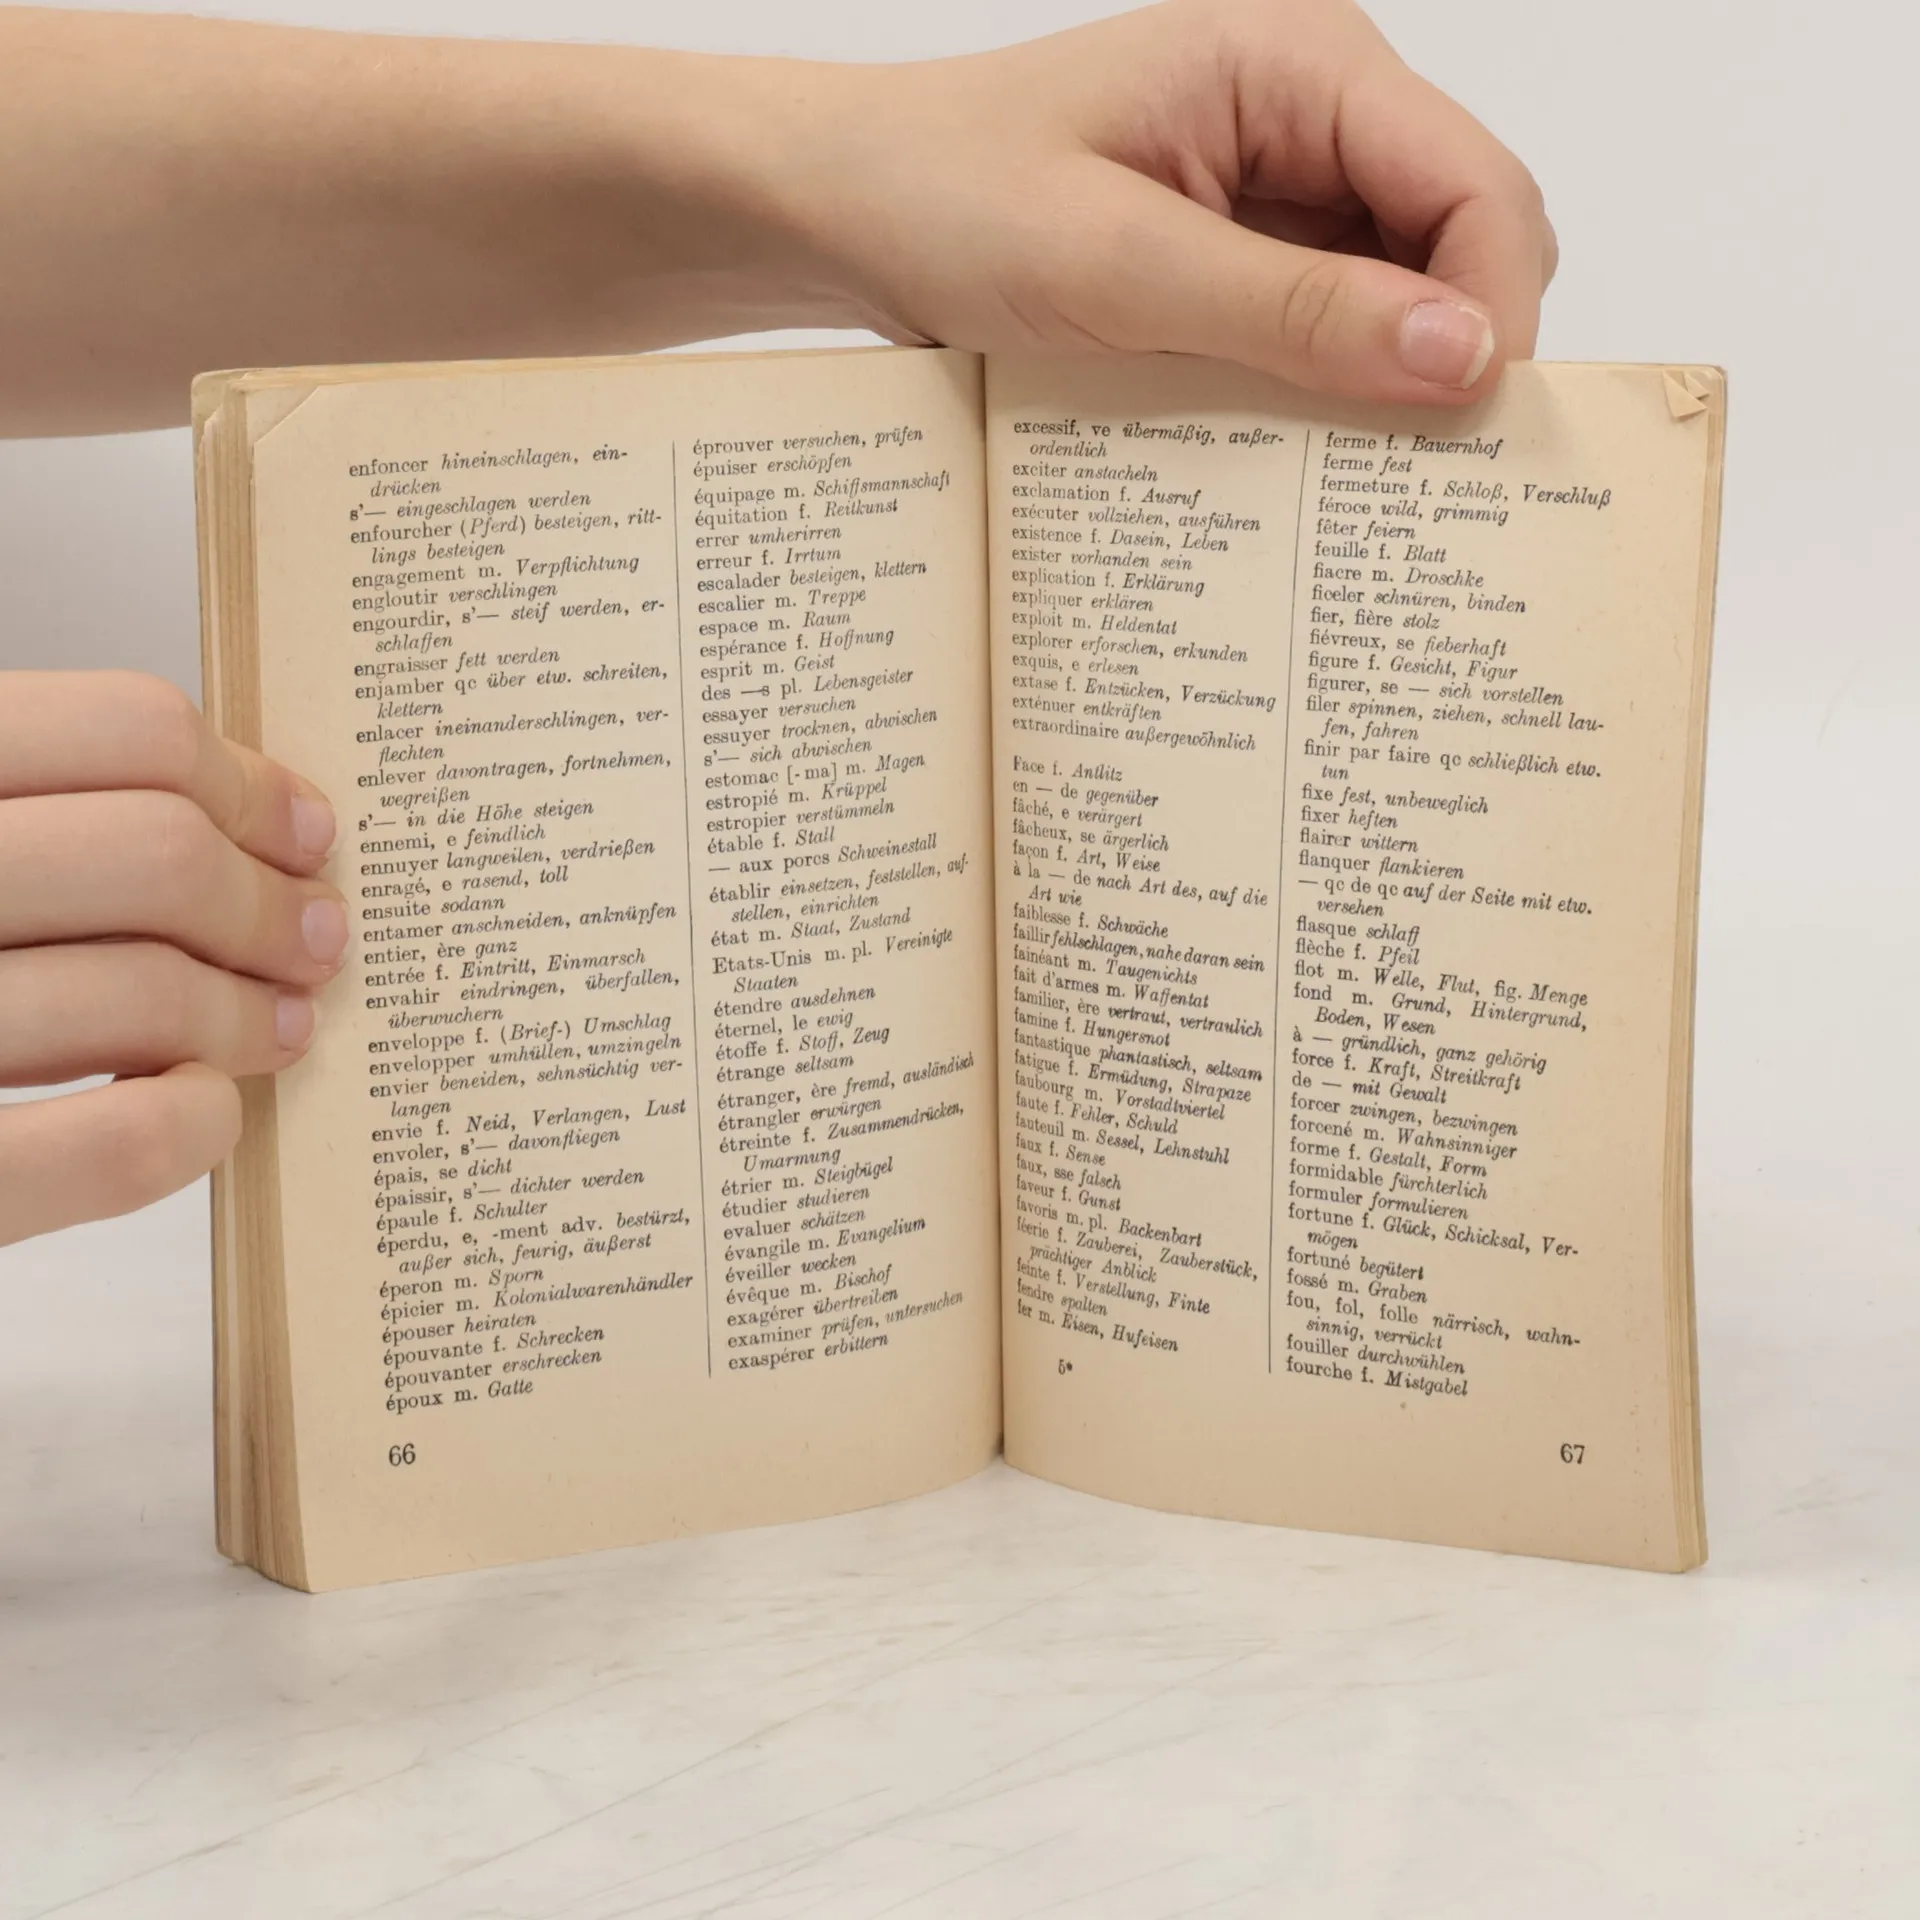 enfoncer hineinschlagen, ein-
drücken
s'— eingeschlagen werden
enfourcher (Pferd) besteigen, ritt-
lings besteigen
engagement m. Verpflichtung
engloutir verschlingen
engourdir, s'— steif werden, er-
schlaffen
engraisser fett werden
enjamber qc über etw. schreiten,
klettern
enlacer ineinanderschlingen, ver-
flechten
enlever davontragen, fortnehmen,
wegreißen
s'— in die Höhe steigen
ennemi, e feindlich
ennuyer langweilen, verdrießen
enragé, e rasend, toll
ensuite sodann
entamer anschneiden, anknüpfen
entier, ère ganz
entrée f. Eintritt, Einmarsch
envahir eindringen, überfallen,
überwuchern
enveloppe f. (Brief-) Umschlag
envelopper umhüllen, umzingeln
envier beneiden, sehnsüchtig ver-
langen
envie f. Neid, Verlangen, Lust
envoler, s'— davonfliegen
épais, se dicht
épaissir, s'— dichter werden
épaule f. Schulter
éperdu, e, -ment adv. bestürzt,
außer sich, feurig, äußerst
éperon m. Sporn
épicier m. Kolonialwarenhändler
épouser heiraten
épouvante f. Schrecken
épouvanter erschrecken
époux m. Gatte
éprouver versuchen, prüfen
épuiser erschöpfen
équipage m. Schiffsmannschaft
équitation f. Reitkunst
errer umherirren
erreur f. Irrtum
escalader besteigen, klettern
escalier m. Treppe
espace m. Raum
espérance f. Hoffnung
esprit m. Geist
des —s pl. Lebensgeister
essayer versuchen
essuyer trocknen, abwischen
s'— sich abwischen
estomac [-ma] m. Magen
estropié m. Krüppel
estropier verstümmeln
étable f. Stall
— aux porcs Schweinestall
établir einsetzen, feststellen, auf-
stellen, einrichten
état m. Staat, Zustand
Etats-Unis m. pl. Vereinigte
Staaten
étendre ausdehnen
éternel, le ewig
étoffe f. Stoff, Zeug
étrange seltsam
étranger, ère fremd, ausländisch
étrangler erwürgen
étreinte f. Zusammendrücken,
Umarmung
étrier m. Steigbügel
étudier studieren
evaluer schätzen
évangile m. Evangelium
éveiller wecken
évêque m. Bischof
exagérer übertreiben
examiner prüfen, untersuchen
exaspérer erbittern
66
excessif, ve übermäßig, außer-
ordentlich
exciter anstacheln
exclamation f. Ausruf
exécuter vollziehen, ausführen
existence f. Dasein, Leben
exister vorhanden sein
explication f. Erklärung
expliquer erklären
exploit m. Heldentat
explorer erforschen, erkunden
exquis, e erlesen
extase f. Entzücken, Verzückung
exténuer entkräften
extraordinaire außergewöhnlich
Face f. Antlitz
en — de gegenüber
fâché, e verärgert
fâcheux, se ärgerlich
façon f. Art, Weise
à la — de nach Art des, auf die
Art wie
faiblesse f. Schwäche
faillir fehlschlagen, nahe daran sein
fainéant m. Taugenichts
fait d'armes m. Waffentat
familier, ère vertraut, vertraulich
famine f. Hungersnot
fantastique phantastisch, seltsam
fatigue f. Ermüdung, Strapaze
faubourg m. Vorstadtviertel
faute f. Fehler, Schuld
fauteuil m. Sessel, Lehnstuhl
faux f. Sense
faux, sse falsch
faveur f. Gunst
favoris m. pl. Backenbart
féerie f. Zauberei, Zauberstück,
prächtiger Anblick
feinte f. Verstellung, Finte
fendre spalten
fer m. Eisen, Hufeisen
5*
ferme f. Bauernhof
ferme fest
fermeture f. Schloß, Verschluß
féroce wild, grimmig
fêter feiern
feuille f. Blatt
fiacre m. Droschke
ficeler schnüren, binden
fier, fière stolz
fiévreux, se fieberhaft
figure f. Gesicht, Figur
figurer, se — sich vorstellen
filer spinnen, ziehen, schnell lau-
fen, fahren
finir par faire qc schließlich etw.
tun
fixe fest, unbeweglich
fixer heften
flairer wittern
flanquer flankieren
— qc de qc auf der Seite mit etw.
versehen
flasque schlaff
flèche f. Pfeil
flot m. Welle, Flut, fig. Menge
fond m. Grund, Hintergrund,
Boden, Wesen
à — gründlich, ganz gehörig
force f. Kraft, Streitkraft
de — mit Gewalt
forcer zwingen, bezwingen
forcené m. Wahnsinniger
forme f. Gestalt, Form
formidable fürchterlich
formuler formulieren
fortune f. Glück, Schicksal, Ver-
mögen
fortuné begütert
fossé m. Graben
fou, fol, folle närrisch, wahn-
sinnig, verrückt
fouiller durchwühlen
fourche f. Mistgabel
67